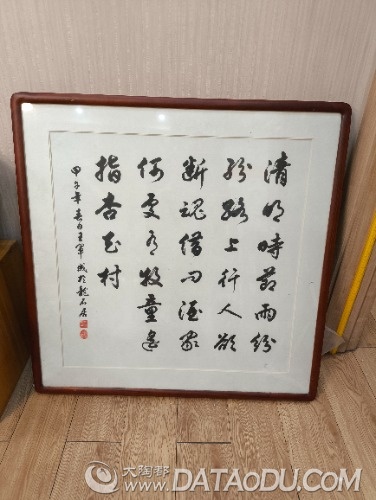 清明時節雨紛
紛路上行人欲
断魂借问酒家
何處有牧童遥
指杏花村
甲子年春日王軍
大陶都 www.DATAoDU.com